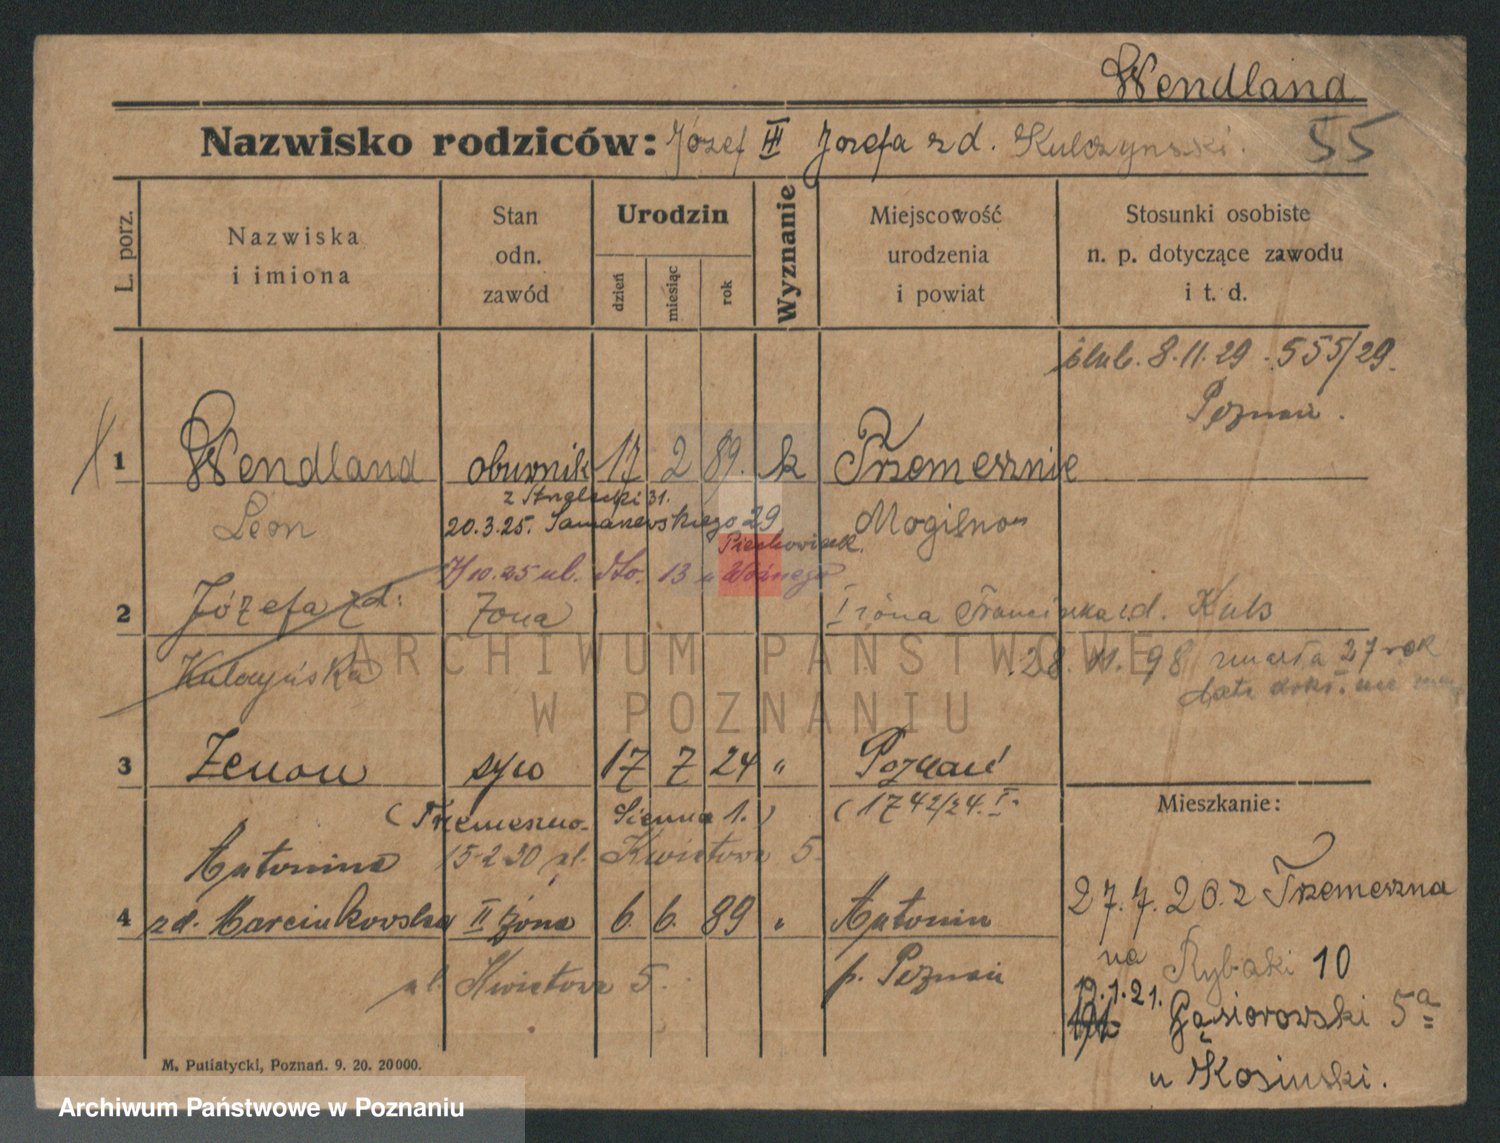 Wendland
Nazwisko rodziców: Józef Józefa zd. Kulczynski.
55
L. porz.
Nazwiska
i imiona
Stan
odn.
zawód
Urodzin
dzień
miesiąc
rok
Wyznanie
Miejscowość
urodzenia
i powiat
Stosunki osobiste
n. p. dotyczące zawodu
i t. d.
ślub. 8.11.29 . 555/29.
Poznań.
1 Wendland obuwnik 17 2 89. k Trzemesznie
z Strzelecki 31.
Leon 20.3.25. Samarzewskiego 29 Mogilno
Piechowiak.
7/10.25 ul. 13 u Woźnego
2 Józefa zd: żona I żona Franciszka zd. Kuls
Kulczyńska 28. 11. 98 zmarła 27 rok
ARCHIWUM PAŃSTWOWE
W POZNANIU
3 Zenon syn 17 7 24 " Poznań
(Trzemeszno. Sienna 1.) (1742/24. I.
Mieszkanie:
Antonina 15.2.30 ul. Kwiatowa 5.
4 zd. Marcinkowska II żona 6. 6. 89 " Antonin
ul. Kwiatowa 5. p. Poznań
27.7.20. z Trzemeszna
na Rybaki 10
12.1.21. Gąsiorowski 5a
u Kosinski.
M. Putiatycki, Poznań. 9. 20. 20000.
Archiwum Państwowe w Poznaniu